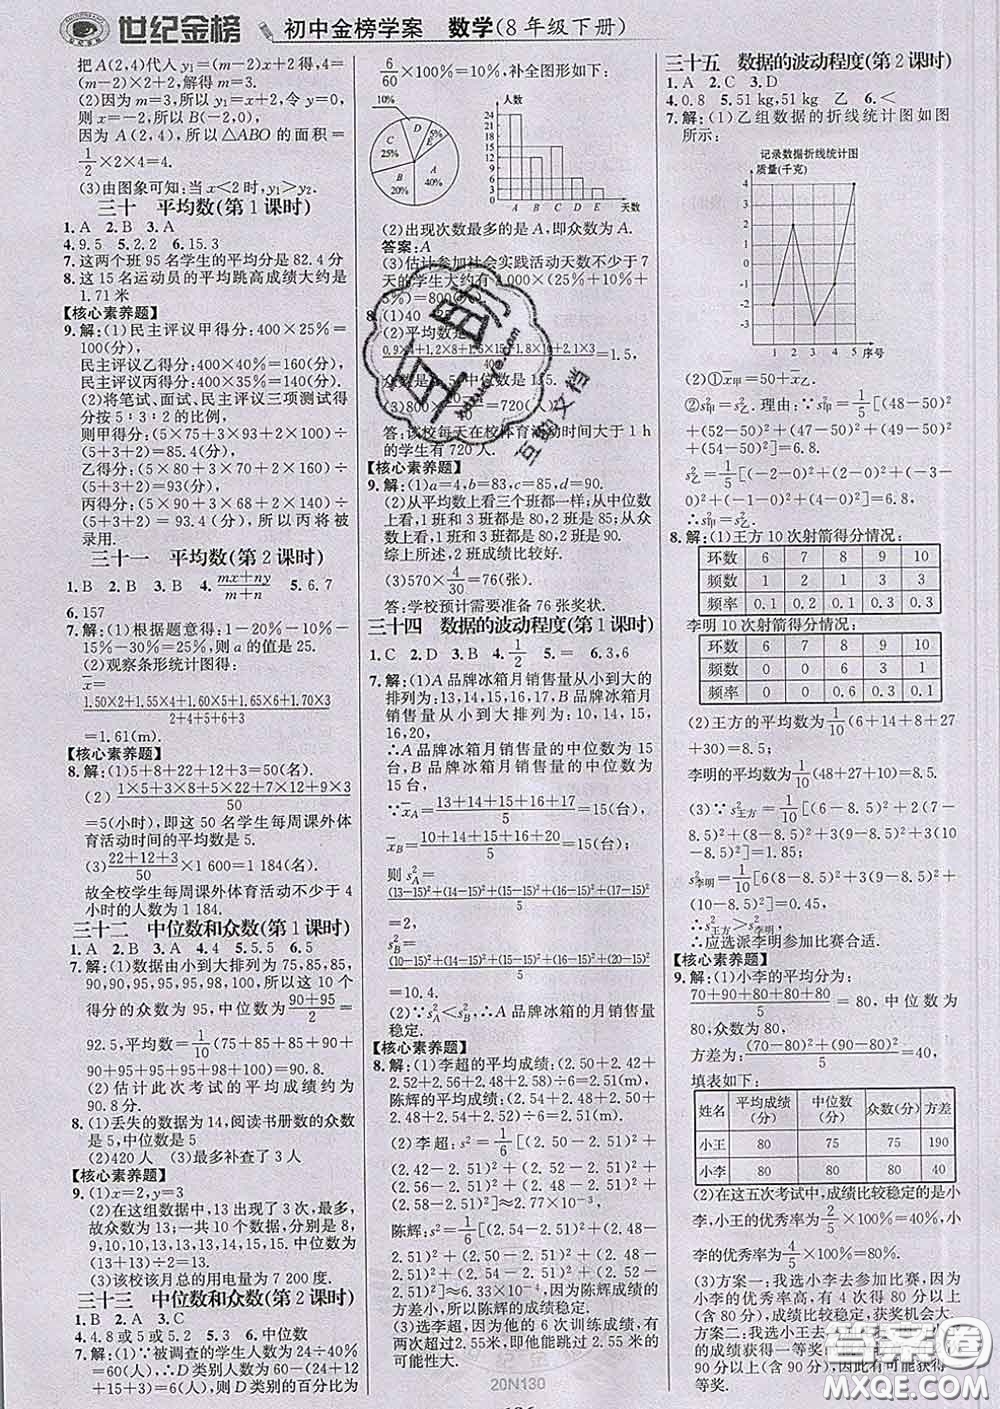 世纪金榜 初中金榜学案 数学(8年级下册)
把A(2,4)代入y₁=(m-2)x+2得,4=
(m-2)×2+2,解得m=3.
(2)因为m=3,所以y₁=x+2,令y=0,
则x=-2,所以B(-2,0),
因为A(2,4),所以△ABO的面积=
1/2×2×4=4.
(3)由图象可知:当x<2时,y₁>y₂.
三十 平均数(第1课时)
1.A 2.B 3.A
4.9.5 5.2.2 6.15.3
7.这两个班95名学生的平均分是82.4分
8.这15名运动员的平均跳高成绩大约是
1.71米
【核心素养题】
9.解:(1)民主评议甲得分:400×25%=
100(分),
民主评议乙得分:400×40%=160(分),
民主评议丙得分:400×35%=140(分).
(2)将笔试、面试、民主评议三项测试得
分按5∶3∶2的比例,
则甲得分:(5×75+3×93+2×100)÷
(5+3+2)=85.4(分),
乙得分:(5×80+3×70+2×160)÷
(5+3+2)=93(分),
丙得分:(5×90+3×68+2×140)÷
(5+3+2)=93.4(分),所以丙将被
录用.
三十一 平均数(第2课时)
1.B 2.B 3.B 4.(mx+ny)/(m+n) 5.6.7
6.157
7.解:(1)根据题意得:1-20%-10%-
15%-30%=25%,则a的值是25.
(2)观察条形统计图得:
x̄=
(1.50×2+1.55×4+1.60×5+1.65×6+1.70×3)/(2+4+5+6+3)
=1.61(m).
【核心素养题】
8.解:(1)5+8+22+12+3=50(名).
(2)(1×5+3×8+5×22+7×12+9×3)/50=
5(小时),即这50名学生每周课外体
育活动时间的平均数是5.
(3)(22+12+3)/50×1 600=1 184(名).
故全校学生每周课外体育活动不少于4
小时的人数为1 184.
三十二 中位数和众数(第1课时)
1.A 2.B 3.A 4.4 5.5.5 6.5
7.解:(1)数据由小到大排列为75,85,85,
90,90,95,95,95,98,100,所以这10个
得分的众数为95,中位数为(90+95)/2=
92.5,平均数=1/10(75+85+85+
90+90+95+95+95+98+100)=
90.8.
(2)估计此次考试的平均成绩约为
90.8分.
8.(1)丢失的数据为14,阅读书册数的众数
是5,中位数是5.
(2)420人 (3)最多补查了3人
【核心素养题】
9.(1)x=2,y=3
(2)在这组数据中,13出现了3次,最多,
故众数为13;一共10个数,分别是8,
9,9,10,13,13,13,14,15,15,中位数是
(13+13)÷2=13.
(3)该校该月总的用电量为7 200度.
三十三 中位数和众数(第2课时)
1.B 2.A 3.C
4.4.8或5或5.2 5.3 6.中位数
7.解:(1)∵被调查的学生人数为24÷40%
=60(人),∴D类别人数为60-(24+12
+15+3)=6(人),则D类别的百分比为
6/60×100%=10%,补全图形如下:
10%
D
E
5%
C
25%
A
40%
B
20%
人数
24
21
18
15
12
9
6
3
0
A B C D E 天数
(2)出现次数最多的是A,即众数为A.
答案:A
(3)估计参加社会实践活动天数不少于7
天的学生大约有2 000×(25%+10%+
5%)=800(人).
8.(1)40 25
(2)平均数是
(0.9×4+1.2×8+1.5×15+1.8×10+2.1×3)/40=1.5,
众数是1.5,中位数是1.5.
(3)800×=720(人).
答:该校每天在校体育活动时间大于1 h
的学生有720人.
【核心素养题】
9.(1)a=4,b=83,c=85,d=90.
(2)从平均数上看三个班都一样;从中位数
上看,1班和3班都是80,2班是85;从众数
上看,1班和3班都是80,2班是90.
综上所述,2班成绩比较好.
(3)570×4/30=76(张).
答:学校预计需要准备76张奖状.
三十四 数据的波动程度(第1课时)
1.C 2.D 3.B 4.1/2 5.= 6.3,6
7.解:(1)A品牌冰箱月销售量从小到大的
排列为:13,14,15,16,17,B品牌冰箱
月销售量从小到大排列为:10,14,15,
16,20,
∴A品牌冰箱月销售量的中位数为15
台,B品牌冰箱月销售量的中位数为
15台,
∵x̄A=(13+14+15+16+17)/5=15(台),
x̄B=(10+14+15+16+20)/5=15(台),
则s²A=
((13-15)²+(14-15)²+(15-15)²+(16-15)²+(17-15)²)/5
=2,
s²B=
((10-15)²+(14-15)²+(15-15)²+(16-15)²+(20-15)²)/5
=10.4.
(2)∵s²A<s²B,∴A品牌冰箱的月销售量
稳定.
【核心素养题】
8.解:(1)李超的平均成绩:(2.50+2.42+
2.52+2.56+2.48+2.58)÷6=2.51(m),
陈辉的平均成绩:(2.54+2.48+2.50+
2.48+2.54+2.52)÷6=2.51(m).
(2)李超:s²=1/6[(2.50-2.51)²+
(2.42-2.51)²+(2.52-2.51)²+
(2.56-2.51)²+(2.48-2.51)²+
(2.58-2.51)²]≈2.77×10⁻³(m²),
陈辉:s²=1/6[(2.54-2.51)²+(2.48-
2.51)²+(2.50-2.51)²+(2.48-
2.51)²+(2.54-2.51)²+(2.52-
2.51)²]≈6.33×10⁻⁴(m²),因为陈辉成绩
的方差小,所以陈辉的成绩更稳定.
(3)选李超,因为他的6次训练成绩,有
两次超过2.55米,即他能跳过2.55米的
可能性大.
三十五 数据的波动程度(第2课时)
1.A 2.C 3.D
4.0.8 5.51 kg,51 kg 乙 6.<
7.解:(1)乙组数据的折线统计图如图
所示:
记录数据折线统计图
质量(千克)
4
3
2
1
0
-1
-2
-3
1 2 3 4 5 序号
(2)①x̄甲=50+x̄乙.
②s²甲=s²乙.理由:∵s²甲=1/5[(48-50)²+
(52-50)²+(47-50)²+(49-50)²+
(54-50)²]=6.8,
s²乙=1/5[(-2-0)²+(2-0)²+(-3-0)²+
(-1-0)²+(4-0)²]=6.8,
∴s²甲=s²乙.
8.解:(1)王方10次射箭得分情况:
环数 6 7 8 9 10
频数 1 2 1 3 3
频率 0.1 0.2 0.1 0.3 0.3
李明10次射箭得分情况:
环数 6 7 8 9 10
频数 0 0 6 3 1
频率 0 0 0.6 0.3 0.1
(2)王方的平均数为1/10(6+14+8+27
+30)=8.5,
李明的平均数为1/10(48+27+10)=8.5.
(3)∵s²王方=1/10[(6-8.5)²+2(7-
8.5)²+(8-8.5)²+3(9-8.5)²+3(10-
8.5)²]=1.85,
s²李明=1/10[6(8-8.5)²+3(9-8.5)²+
(10-8.5)²]=0.45.
∴s²王方>s²李明.
∴应选派李明参加比赛合适.
【核心素养题】
9.解:(1)小李的平均分为:
(70+90+80+80+80)/5=80,中位数为
80,众数为80,
方差为:((70-80)²+(90-80)²)/5=40.
填表如下:
姓名 平均成绩(分) 中位数(分) 众数(分) 方差
小王 80 75 75 190
小李 80 80 80 40
(2)在这五次考试中,成绩比较稳定的是小
李,小王的优秀率为2/5×100%=40%,小
李的优秀率为4/5×100%=80%.
(3)方案一:我选小李去参加比赛,因
为小李的优秀率高,有4次得80分以上
(含80分),成绩比较稳定,获奖机会大.
方案二:我选小王
获得一等奖
90分以上(含90分),因此有可能获得一
等奖.
20N130
答案圈
MXQE.COM